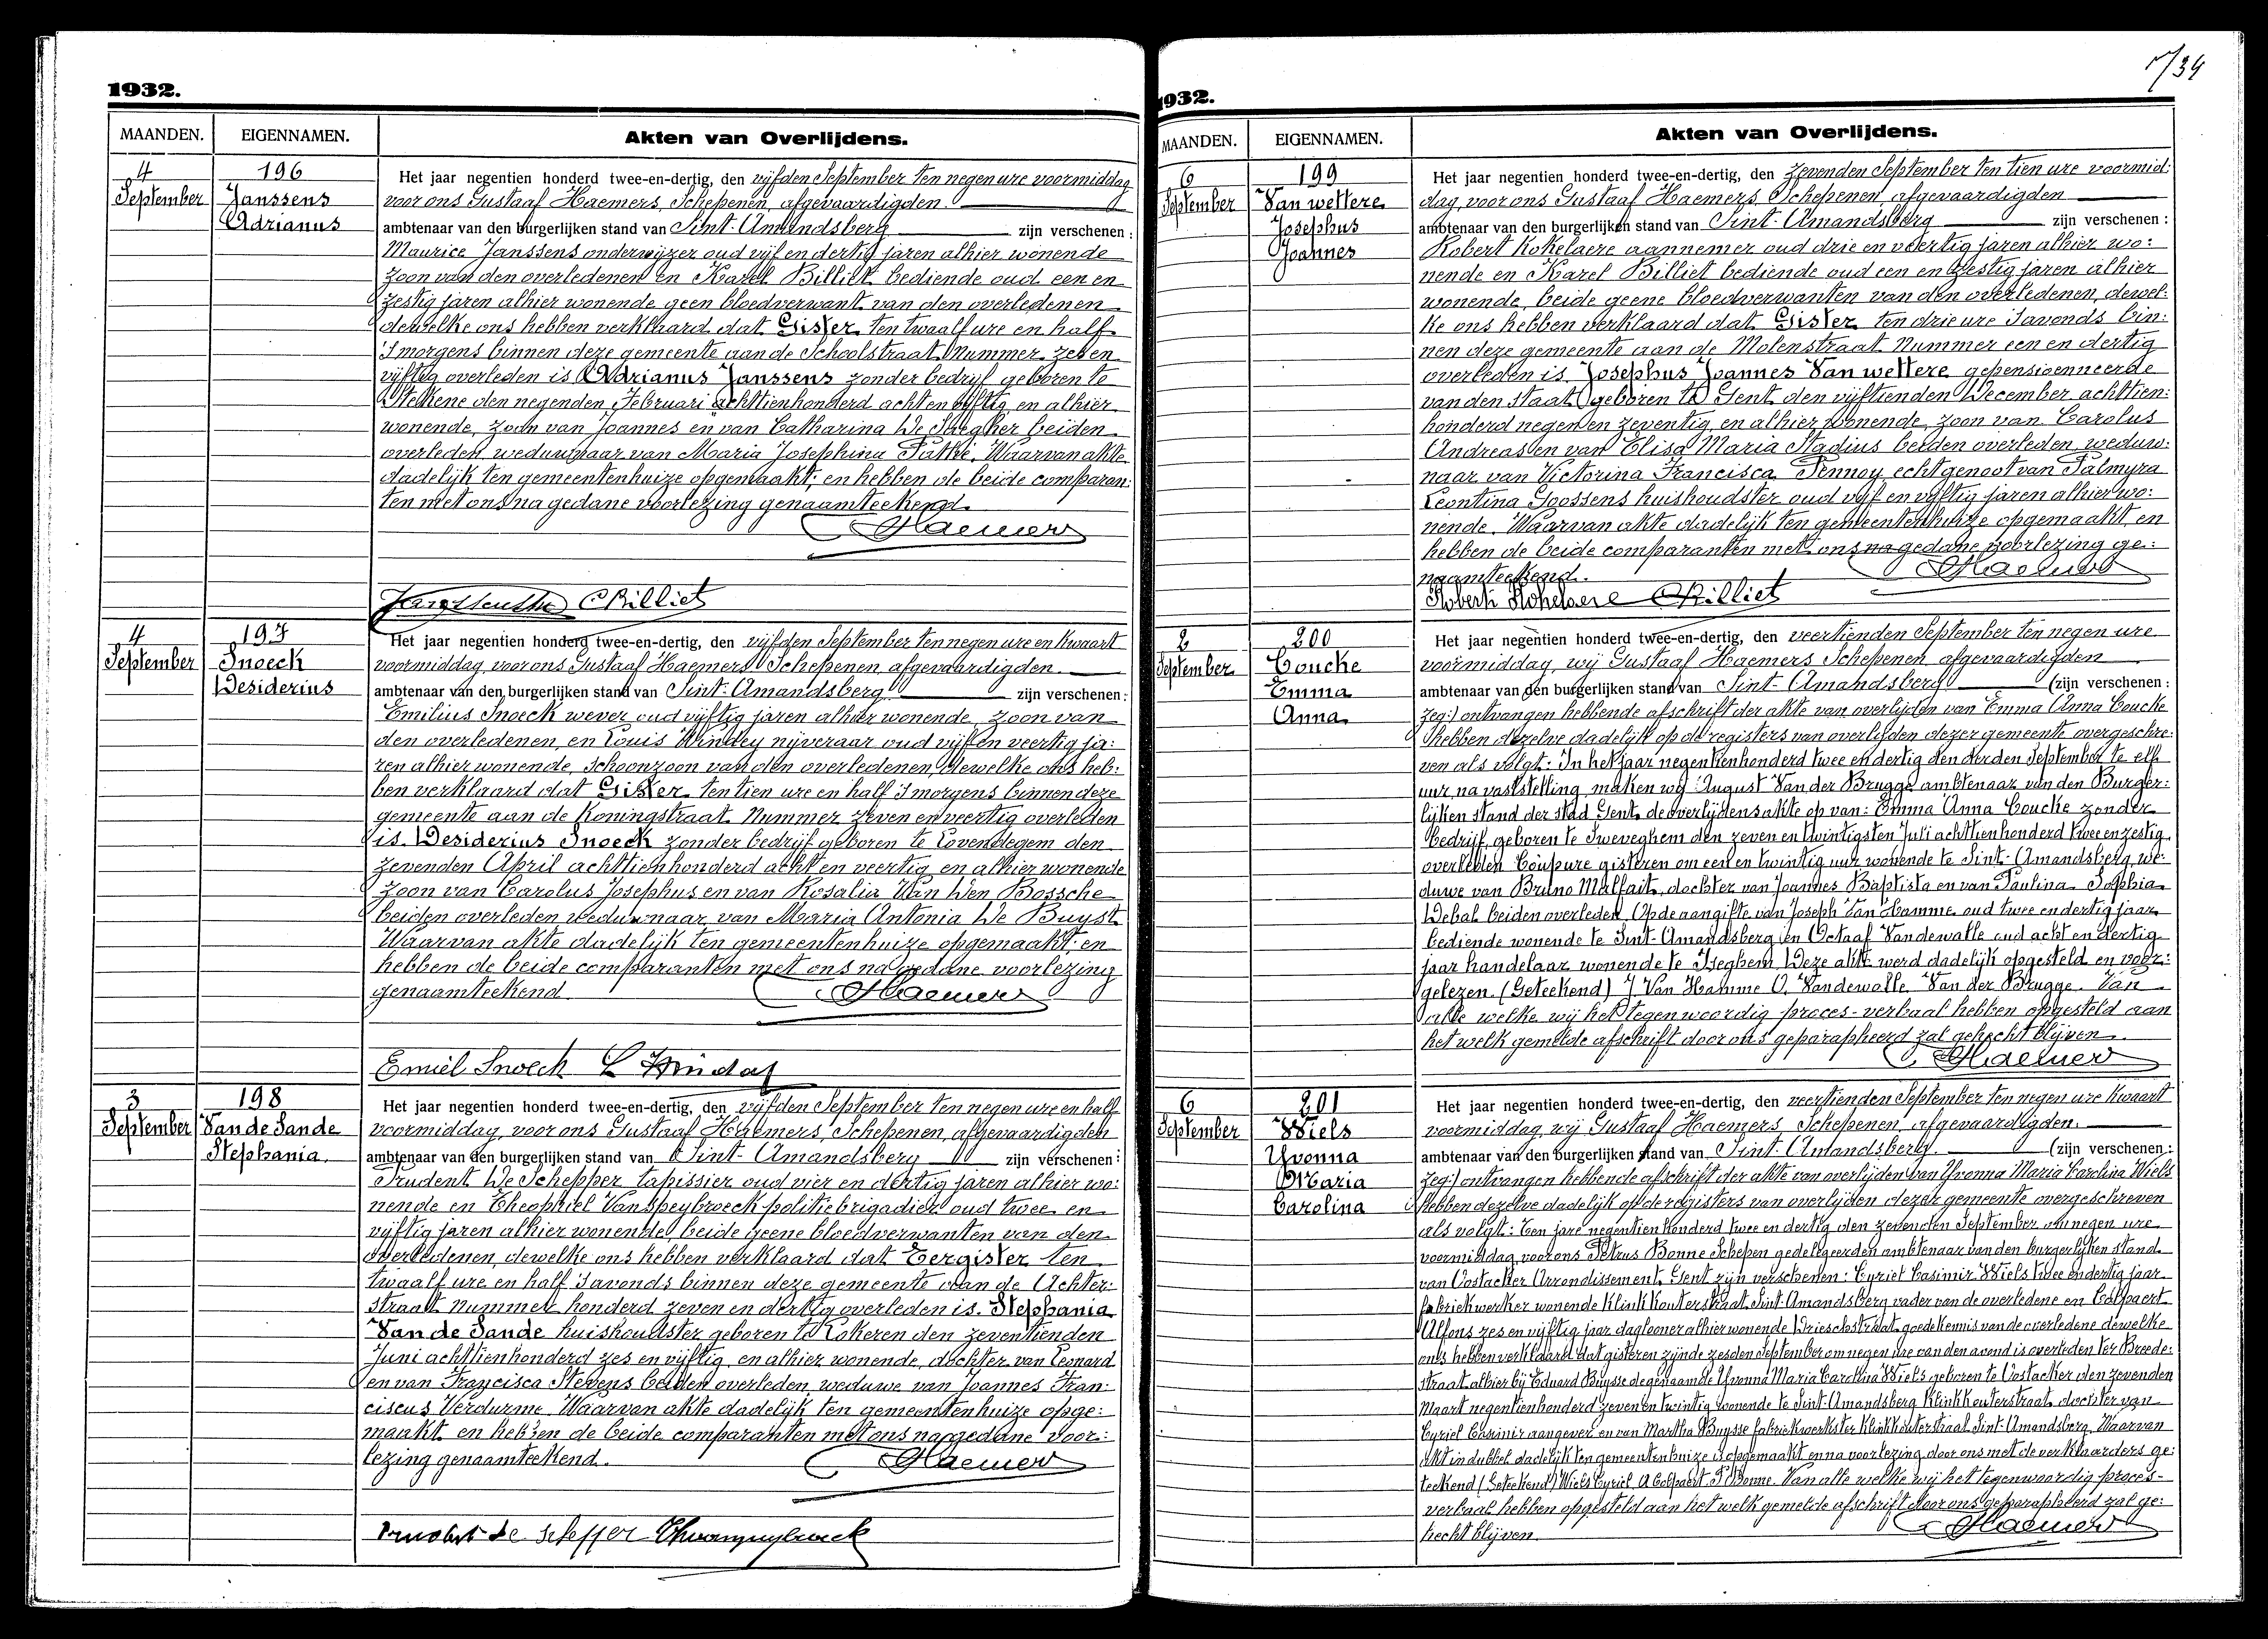 1932.
MAANDEN. EIGENNAMEN. Akten van Overlijdens.
4 196
September Janssens
Adrianus
Het jaar negentien honderd twee-en-dertig, den vijfden September ten negen ure voormiddag
voor ons Gustaaf Haemers, Schepenen, afgevaardigden
ambtenaar van den burgerlijken stand van Sint-Amandsberg zijn verschenen :
Maurice Janssens onderwijzer oud vijf en dertig jaren alhier wonende
zoon van den overledenen en Karel Billiet bediende oud een en
zestig jaren alhier wonende geen bloedverwant van den overledenen
dewelke ons hebben verklaard dat Gister ten twaalf ure en half
'smorgens binnen deze gemeente aan de Schoolstraat Nummer zeven
vijftig overleden is Adrianus Janssens zonder bedrijf geboren te
Stekene den negenden Februari achttienhonderd acht en vijftig en alhier
wonende, zoon van Joannes en van Catharina De Saegher beiden
overleden weduwnaar van Maria Josephina Pathé. Waarvan akte
dadelijk ten gemeentenhuize opgemaakt; en hebben de beide comparan:
ten met ons na gedane voorlezing genaamteekend.
Haemers
CBilliet
4 197
September Snoeck
Desiderius
Het jaar negentien honderd twee-en-dertig, den vijfden September ten negen ure en kwaart
voormiddag, voor ons Gustaaf Haemers Schepenen, afgevaardigden.
ambtenaar van den burgerlijken stand van Sint-Amandsberg zijn verschenen :
Emilius Snoeck wever oud vijftig jaren alhier wonende, zoon van
den overledenen, en Louis Windey nijveraar oud vijf en veertig ja:
ren alhier wonende, schoonzoon van den overledenen, dewelke ons heb:
ben verklaard dat Gister ten tien ure en half 'smorgens binnen deze
gemeente aan de Koningstraat Nummer zeven en veertig overleden
is Desiderius Snoeck zonder bedrijf geboren te Lovendegem den
zevenden April achttienhonderd acht en veertig en alhier wonende
zoon van Carolus Josephus en van Rosalia Van Den Bossche
beiden overleden weduwnaar van Maria Antonia De Buyst
Waarvan akte dadelijk ten gemeentenhuize opgemaakt en
hebben de beide comparanten met ons na gedane voorlezing
genaamteekend Haemers
Emiel Snoeck L Windey
3 198
September Van de Sande
Stephania.
Het jaar negentien honderd twee-en-dertig, den vijfden September ten negen ure en half
voormiddag, voor ons Gustaaf Haemers, Schepenen, afgevaardigden
ambtenaar van den burgerlijken stand van Sint-Amandsberg zijn verschenen :
Prudent De Schepper tapissier oud vier en dertig jaren alhier wo:
nende en Theophiel Vanspeybroeck politiebrigadier oud twee en
vijftig jaren alhier wonende, beide geene bloedverwanten van den
overledenen, dewelke ons hebben verklaard dat Eergister ten
twaalf ure en half 'savonds binnen deze gemeente aan de Achter:
straat nummer honderd zeven en dertig overleden is Stephania
Van de Sande huishoudster geboren te Lokeren den zeventienden
Juni achttienhonderd zes en vijftig en alhier wonende, dochter van Leonard
en van Francisca Stevens beiden overleden weduwe van Joannes Fran:
ciscus Verdurme. Waarvan akte dadelijk ten gemeentenhuize opge:
maakt en hebben de beide comparanten met ons na gedane voor:
lezing genaamteekend. Haemers
Prudent De Schepper
1932.
MAANDEN. EIGENNAMEN. Akten van Overlijdens.
6 199
September Van wettere
Josephus
Joannes
Het jaar negentien honderd twee-en-dertig, den zevenden September ten tien ure voormid:
dag, voor ons Gustaaf Haemers Schepenen afgevaardigden
ambtenaar van den burgerlijken stand van Sint-Amandsberg zijn verschenen :
Robert Kokelaere aannemer oud drie en veertig jaren alhier wo:
nende en Karel Billiet bediende oud een en zestig jaren alhier
wonende, beide geene bloedverwanten van den overledenen, dewel:
ke ons hebben verklaard dat Gister ten drie ure 'savonds bin:
nen deze gemeente aan de Molenstraat Nummer een en dertig
overleden is Josephus Joannes Van wettere gepensioenneerde
van den staat geboren te Gent den vijftienden December achttien:
honderd negen en zeventig en alhier wonende, zoon van Carolus
Andreas en van Elisa Maria Stadius beiden overleden weduw:
naar van Victorina Francisca Pennoy, echtgenoot van Palmyra
Leontina Goossens huishoudster oud vijf en vijftig jaren alhier wo:
nende. Waarvan akte dadelijk ten gemeentenhuize opgemaakt, en
hebben de beide comparanten met ons na gedane voorlezing ge:
naamteekend. Haemers
Robert Kokelaere CBilliet
2 200
September Coucke
Emma
Anna
Het jaar negentien honderd twee-en-dertig, den veertienden September ten negen ure
voormiddag, wij Gustaaf Haemers Schepenen, afgevaardigden
ambtenaar van den burgerlijken stand van Sint-Amandsberg (zijn verschenen :
zeg:) ontvangen hebbende afschrift der akte van overlijden van Emma Anna Coucke
hebben dezelve dadelijk op de registers van overlijden dezer gemeente overgeschre:
ven als volgt: In het jaar negentienhonderd twee en dertig den derden September te elf
uur, na vaststelling, maken wij August Van der Brugge ambtenaar van den Burger:
lijken stand der stad Gent, de overlijdensakte op van: Emma Anna Coucke zonder
bedrijf, geboren te Sweveghem den zeven en twintigsten Juli achttienhonderd twee en zestig
overleden Coupure gisteren om een en twintig uur wonende te Sint-Amandsberg, we:
duwe van Bruno Malfait, dochter van Joannes Baptista en van Paulina Sophia
Debal beiden overleden. Op de aangifte van Joseph Van Hamme oud twee en dertig jaar
bediende wonende te Sint-Amandsberg en Octaaf Vandewalle oud acht en dertig
jaar handelaar wonende te Iseghem. Deze akte werd dadelijk opgesteld en voor:
gelezen. (Geteekend) J. Van Hamme O. Vandewalle Van der Brugge. Van
alle welke wij het tegenwoordig proces-verbaal hebben opgesteld aan
het welk gemelde afschrift door ons geparapheerd zal gehecht blijven.
Haemers
6 201
September Wiels
Yvonna
Maria
Carolina
Het jaar negentien honderd twee-en-dertig, den veertienden September ten negen ure kwaart
voormiddag, wij Gustaaf Haemers, Schepenen, afgevaardigden.
ambtenaar van den burgerlijken stand van Sint-Amandsberg. (zijn verschenen :
zeg:) ontvangen hebbende afschrift der akte van overlijden van Yvonna Maria Carolina Wiels
hebben dezelve dadelijk op de registers van overlijden dezer gemeente overgeschreven
als volgt: Ten jare negentien honderd twee en dertig den zevenden September om negen ure
voormiddag, voor ons Petrus Bonne Schepen gedelegeerden ambtenaar van den burgerlijken stand
van Oostacker Arrondissement Gent zijn verschenen: Cyriel Casimir Wiels twee en dertig jaar
fabriekwerker wonende Klinkkouterstraat Sint-Amandsberg vader van de overledene en Colpaert
Alfons zes en vijftig jaar daglooner alhier wonende Drieschstraat goede kennis van de overledene dewelke
ons hebben verklaard dat gisteren zijnde zesden September om negen ure van den avond is overleden ter Breede:
straat alhier bij Eduard Buysse degenaamde Yvonna Maria Carolina Wiels geboren te Oostacker den zevenden
Maart negentienhonderd zeven en twintig wonende te Sint-Amandsberg Klinkkouterstraat, dochter van
Cyriel Casimir aangever en van Martha Buysse fabriekwerkster Klinkkouterstraat Sint-Amandsberg. Waarvan
akt in dubbel dadelijk ten gemeentenhuize is opgemaakt en na voorlezing door ons met de verklaarders ge:
teekend (Geteekend) Wiels Cyriel. A Colpaert. P. Bonne. Van alle welke wij het tegenwoordig proces-
verbaal hebben opgesteld aan het welk gemelde afschrift door ons geparapheerd zal ge:
hecht blijven. Haemers